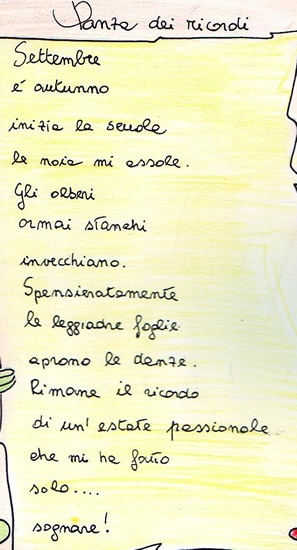 Danza dei ricordi
Settembre
é autunno
inizia la scuola
la noia mi assale.
Gli alberi
ormai stanchi
invecchiano.
Spensieratamente
le leggiadre foglie
aprono le danze.
Rimane il ricordo
di un' estate passionale
che mi ha fatto
solo....
sognare!